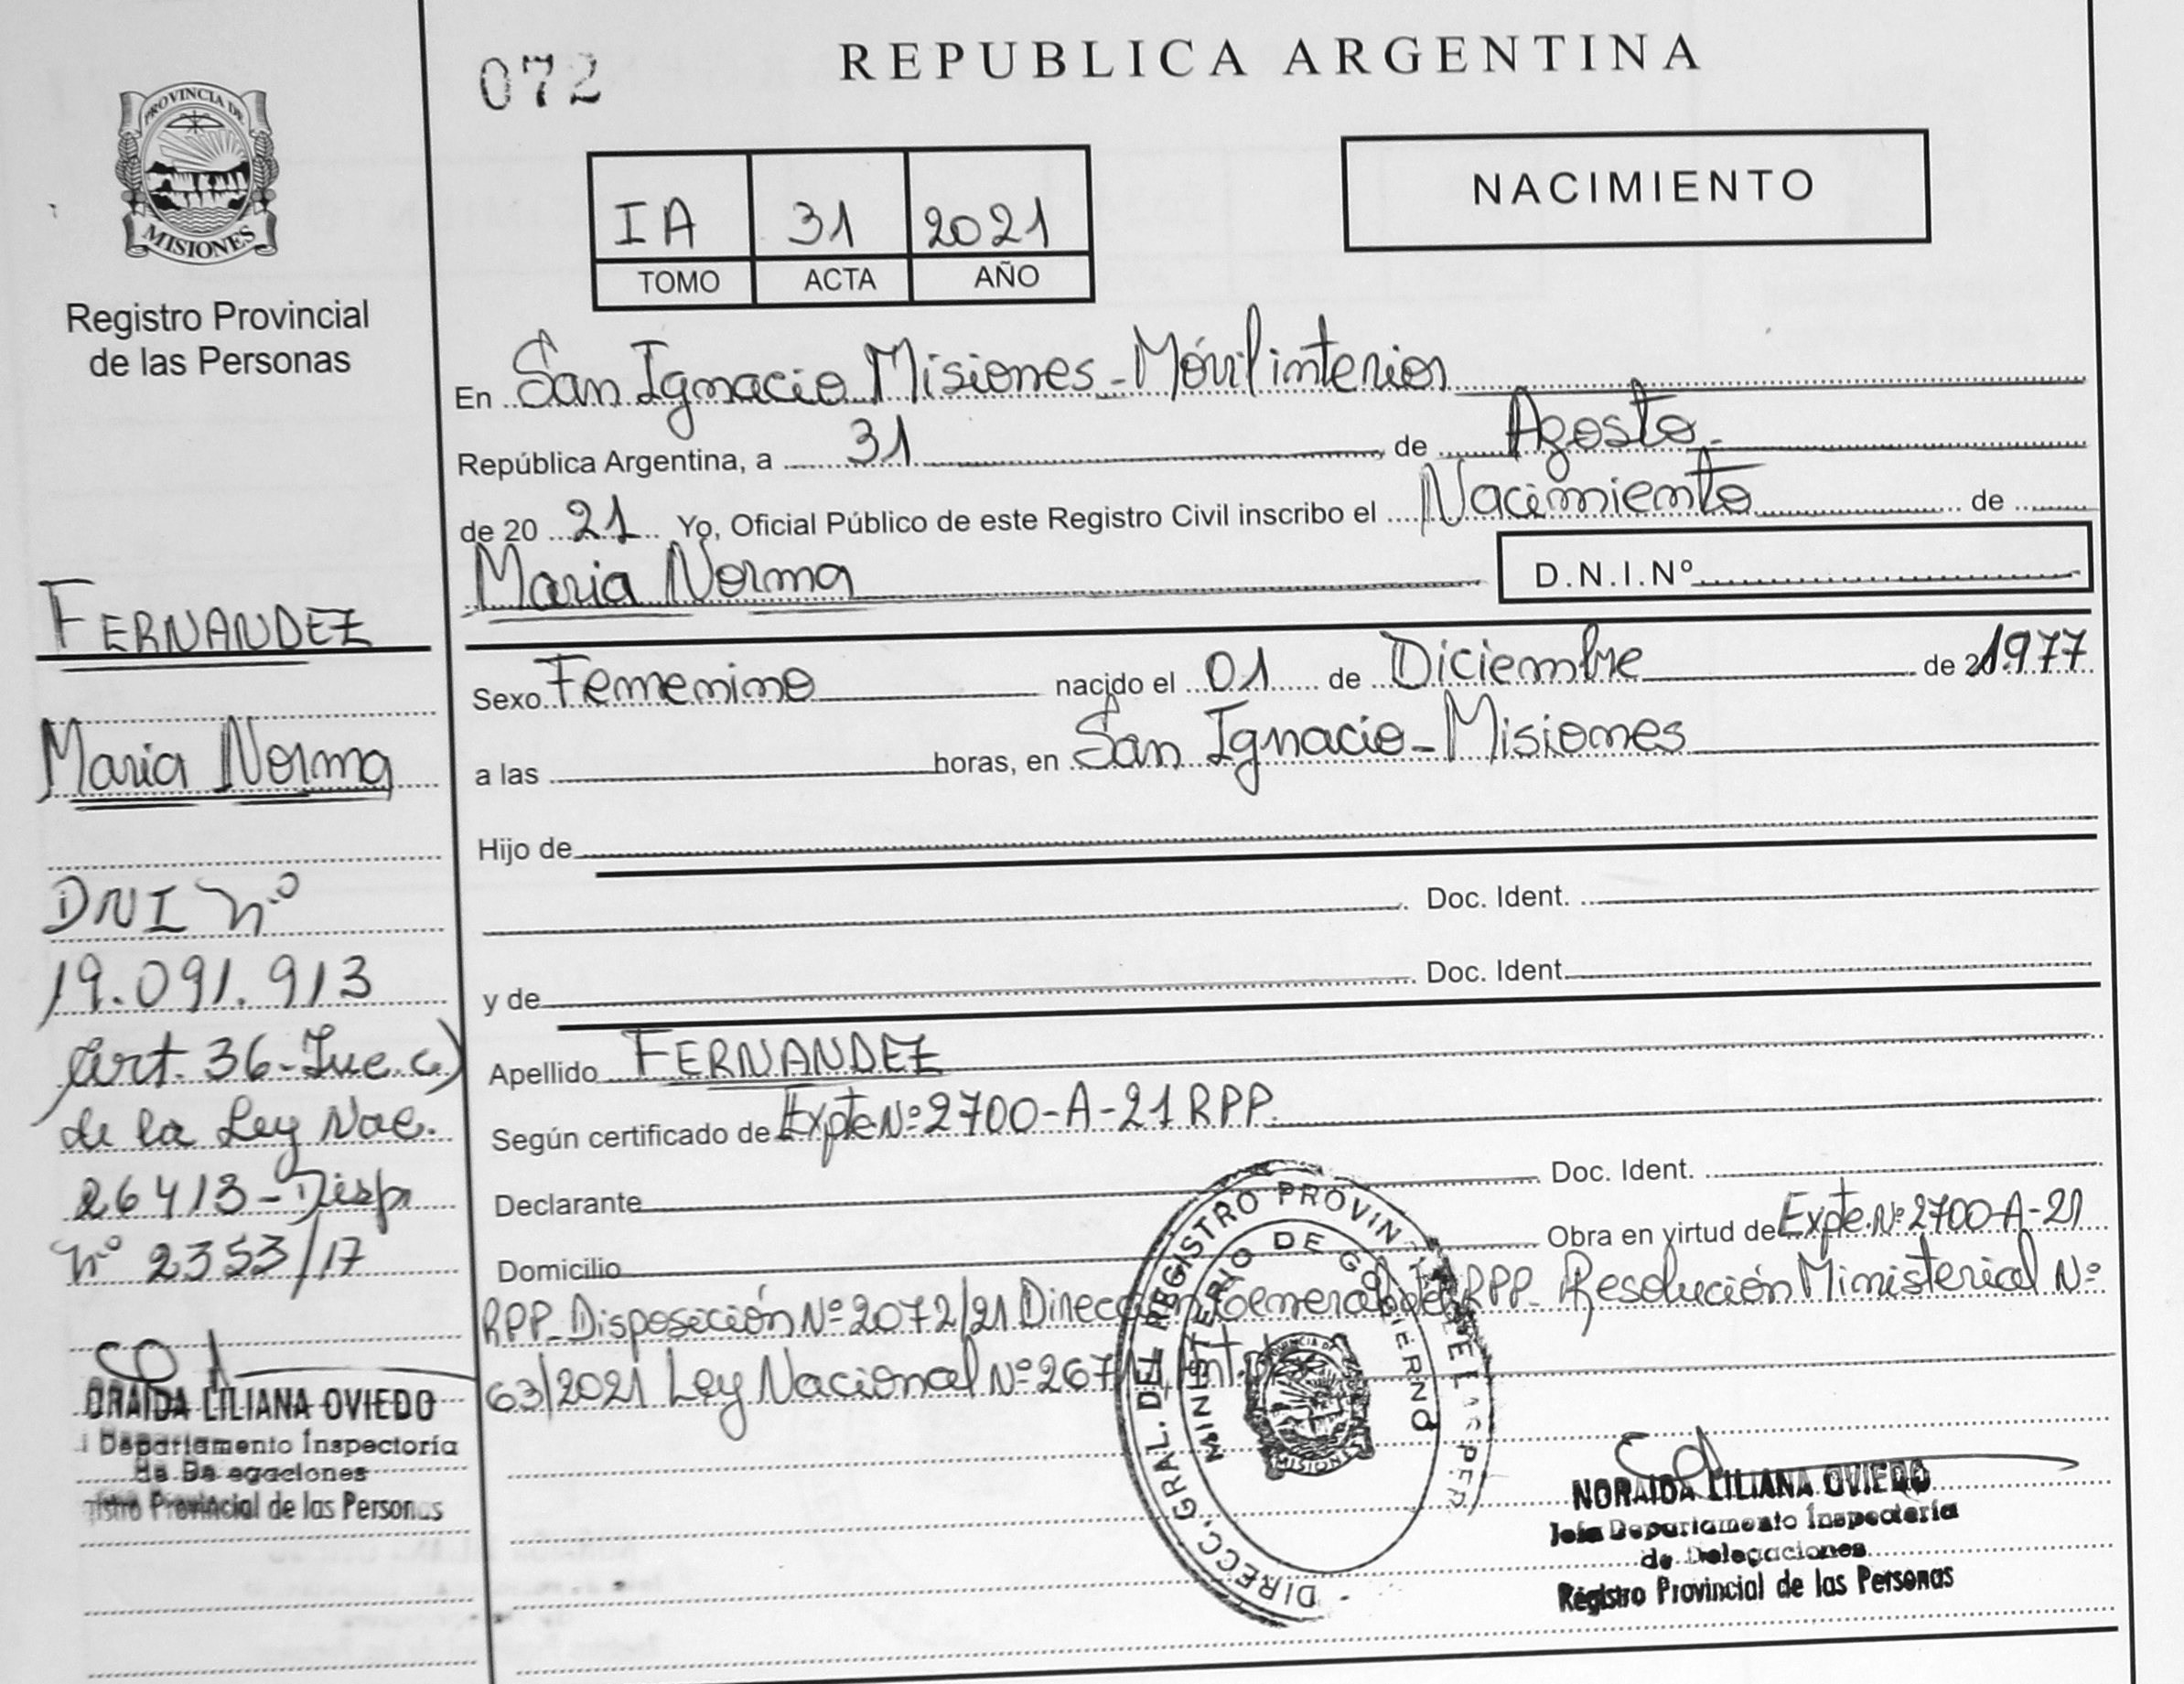 PROVINCIA DE
MISIONES
Registro Provincial
de las Personas
FERNANDEZ
Maria Norma
DNI nº
19.091.913
Art. 36-Inc. c)
de la Ley Nac.
26413-Disp
nº 2353/17
ORAIDA LILIANA OVIEDO
Departamento Inspectoría
Provincial de las Personas
072
REPUBLICA ARGENTINA
NACIMIENTO
IA 31 2021
TOMO ACTA AÑO
En San Ignacio Misiones-Móvil interior
República Argentina, a 31 de Agosto
de 20 21 Yo, Oficial Público de este Registro Civil inscribo el Nacimiento de
Maria Norma D.N.I.Nº
Sexo Femenino nacido el 01 de Diciembre de 1977
a las horas, en San Ignacio-Misiones
Hijo de
Doc. Ident.
y de Doc. Ident.
Apellido FERNANDEZ
Según certificado de Expte Nº 2700-A-21 RPP.
Declarante Doc. Ident.
Domicilio Obra en virtud de Expte.Nº 2700-A-21
RPP-Disposición Nº 2072/21 Dirección General del RPP- Resolución Ministerial Nº
63/2021 Ley Nacional Nº
DIRECC. GRAL. DEL REGISTRO
MINISTERIO DE GOBIERNO
MISIONES
NORAIDA LILIANA OVIEDO
Jefa Departamento Inspectoría
de Delegaciones
Registro Provincial de las Personas